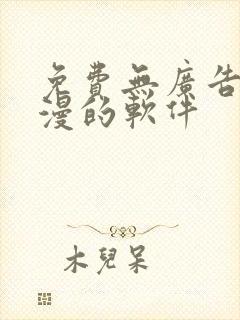 免費無廣告
漫的軟件
木兒呆